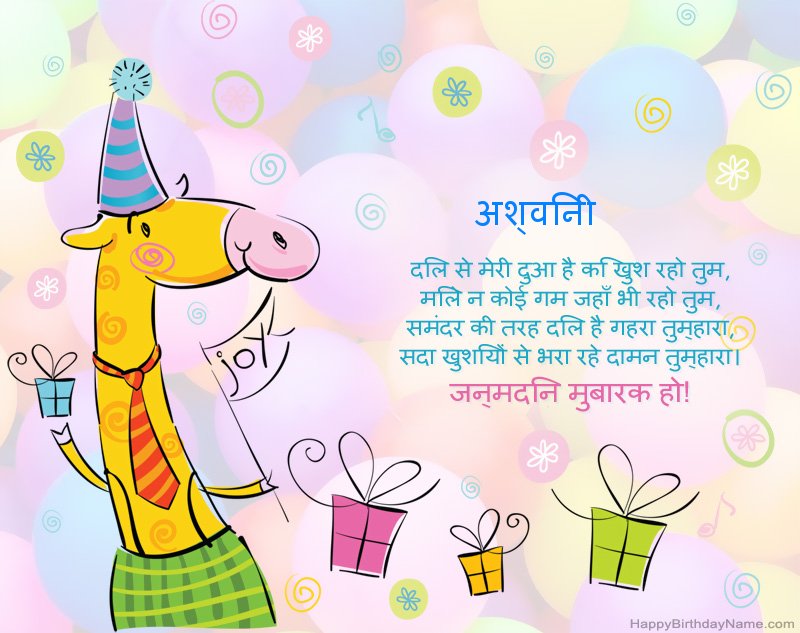 अश्विनी
joy
दिल से मेरी दुआ है कि खुश रहो तुम,
मिले न कोई गम जहाँ भी रहो तुम,
समंदर की तरह दिल है गहरा तुम्हारा,
सदा खुशियों से भरा रहे दामन तुम्हारा।
जन्मदिन मुबारक हो!
HappyBirthdayName.com